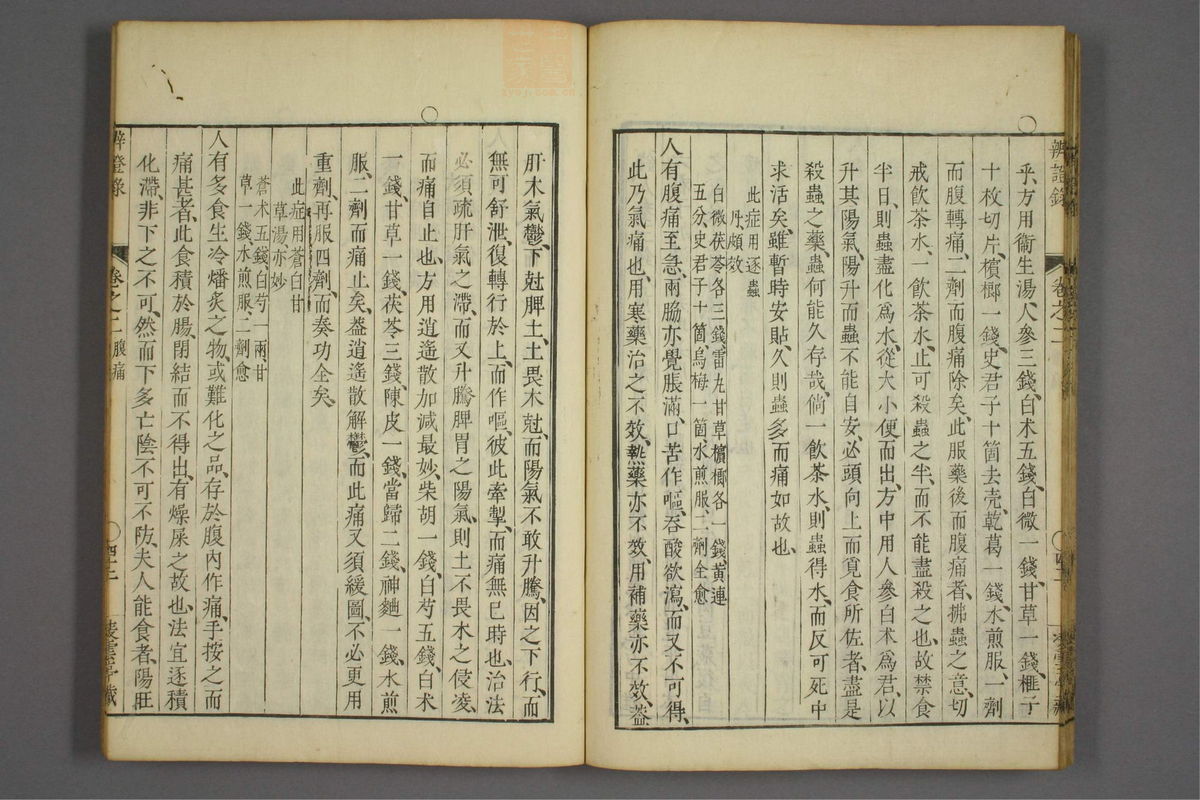 辨證錄
卷之二
乎、方用衞生湯、人參三錢、白术五錢、白微一錢、甘草一錢、榧子
十枚切片、檳榔一錢、史君子十箇去壳、乾葛一錢、水煎服、一劑
而腹轉痛、二劑而腹痛除矣、此服藥後而腹痛者、拂蟲之意、切
戒飲茶水、一飲茶水、止可殺蟲之半、而不能盡殺之也、故禁食
半日、則蟲盡化爲水、從大小便而出、方中用人參白术爲君、以
升其陽氣、陽升而蟲不能自安、必頭向上而覓食、所佐者、盡是
殺蟲之藥、蟲何能久存哉、倘一飲茶水、則蟲得水、而反可死中
求活矣、雖暫時安貼、久則蟲多而痛如故也、
此症用逐蟲
丹、頗效
白微茯苓各三錢、雷丸甘草檳榔各一錢、黃連
五分、史君子十箇、烏梅一箇、水煎服、二劑全愈
人有腹痛至急、兩脇亦覺脹滿、口苦作嘔、吞酸欲瀉、而又不可得、
此乃氣痛也、用寒藥治之不效、熱藥亦不效、用補藥亦不效、蓋
肝木氣鬱、下尅脾土、土畏木尅、而陽氣不敢升騰、因之下行、而
無可舒泄、復轉行於上、而作嘔、彼此牽掣、而痛無已時也、治法
必須疏肝氣之滯、而又升騰脾胃之陽氣、則土不畏木之侵凌、
而痛自止也、方用逍遙散加减最妙、柴胡一錢、白芍五錢、白术
一錢、甘草一錢、茯苓三錢、陳皮一錢、當歸二錢、神麯一錢、水煎
服、二劑而痛止矣、蓋逍遙散解鬱、而此痛又須緩圖、不必更用
重劑、再服四劑、而奏功全矣、
此症用蒼白甘
草湯、亦妙
蒼术五錢白芍一兩、甘
草一錢水煎服、二劑愈
人有多食生冷燔炙之物、或難化之品、存於腹內作痛、手按之而
痛甚者、此食積於腸、閉結而不得出、有燥屎之故也、法宜逐積
化滯、非下之不可、然而下多亡陰、不可不防、夫人能食者、陽旺
辨證錄
卷之二 腹痛